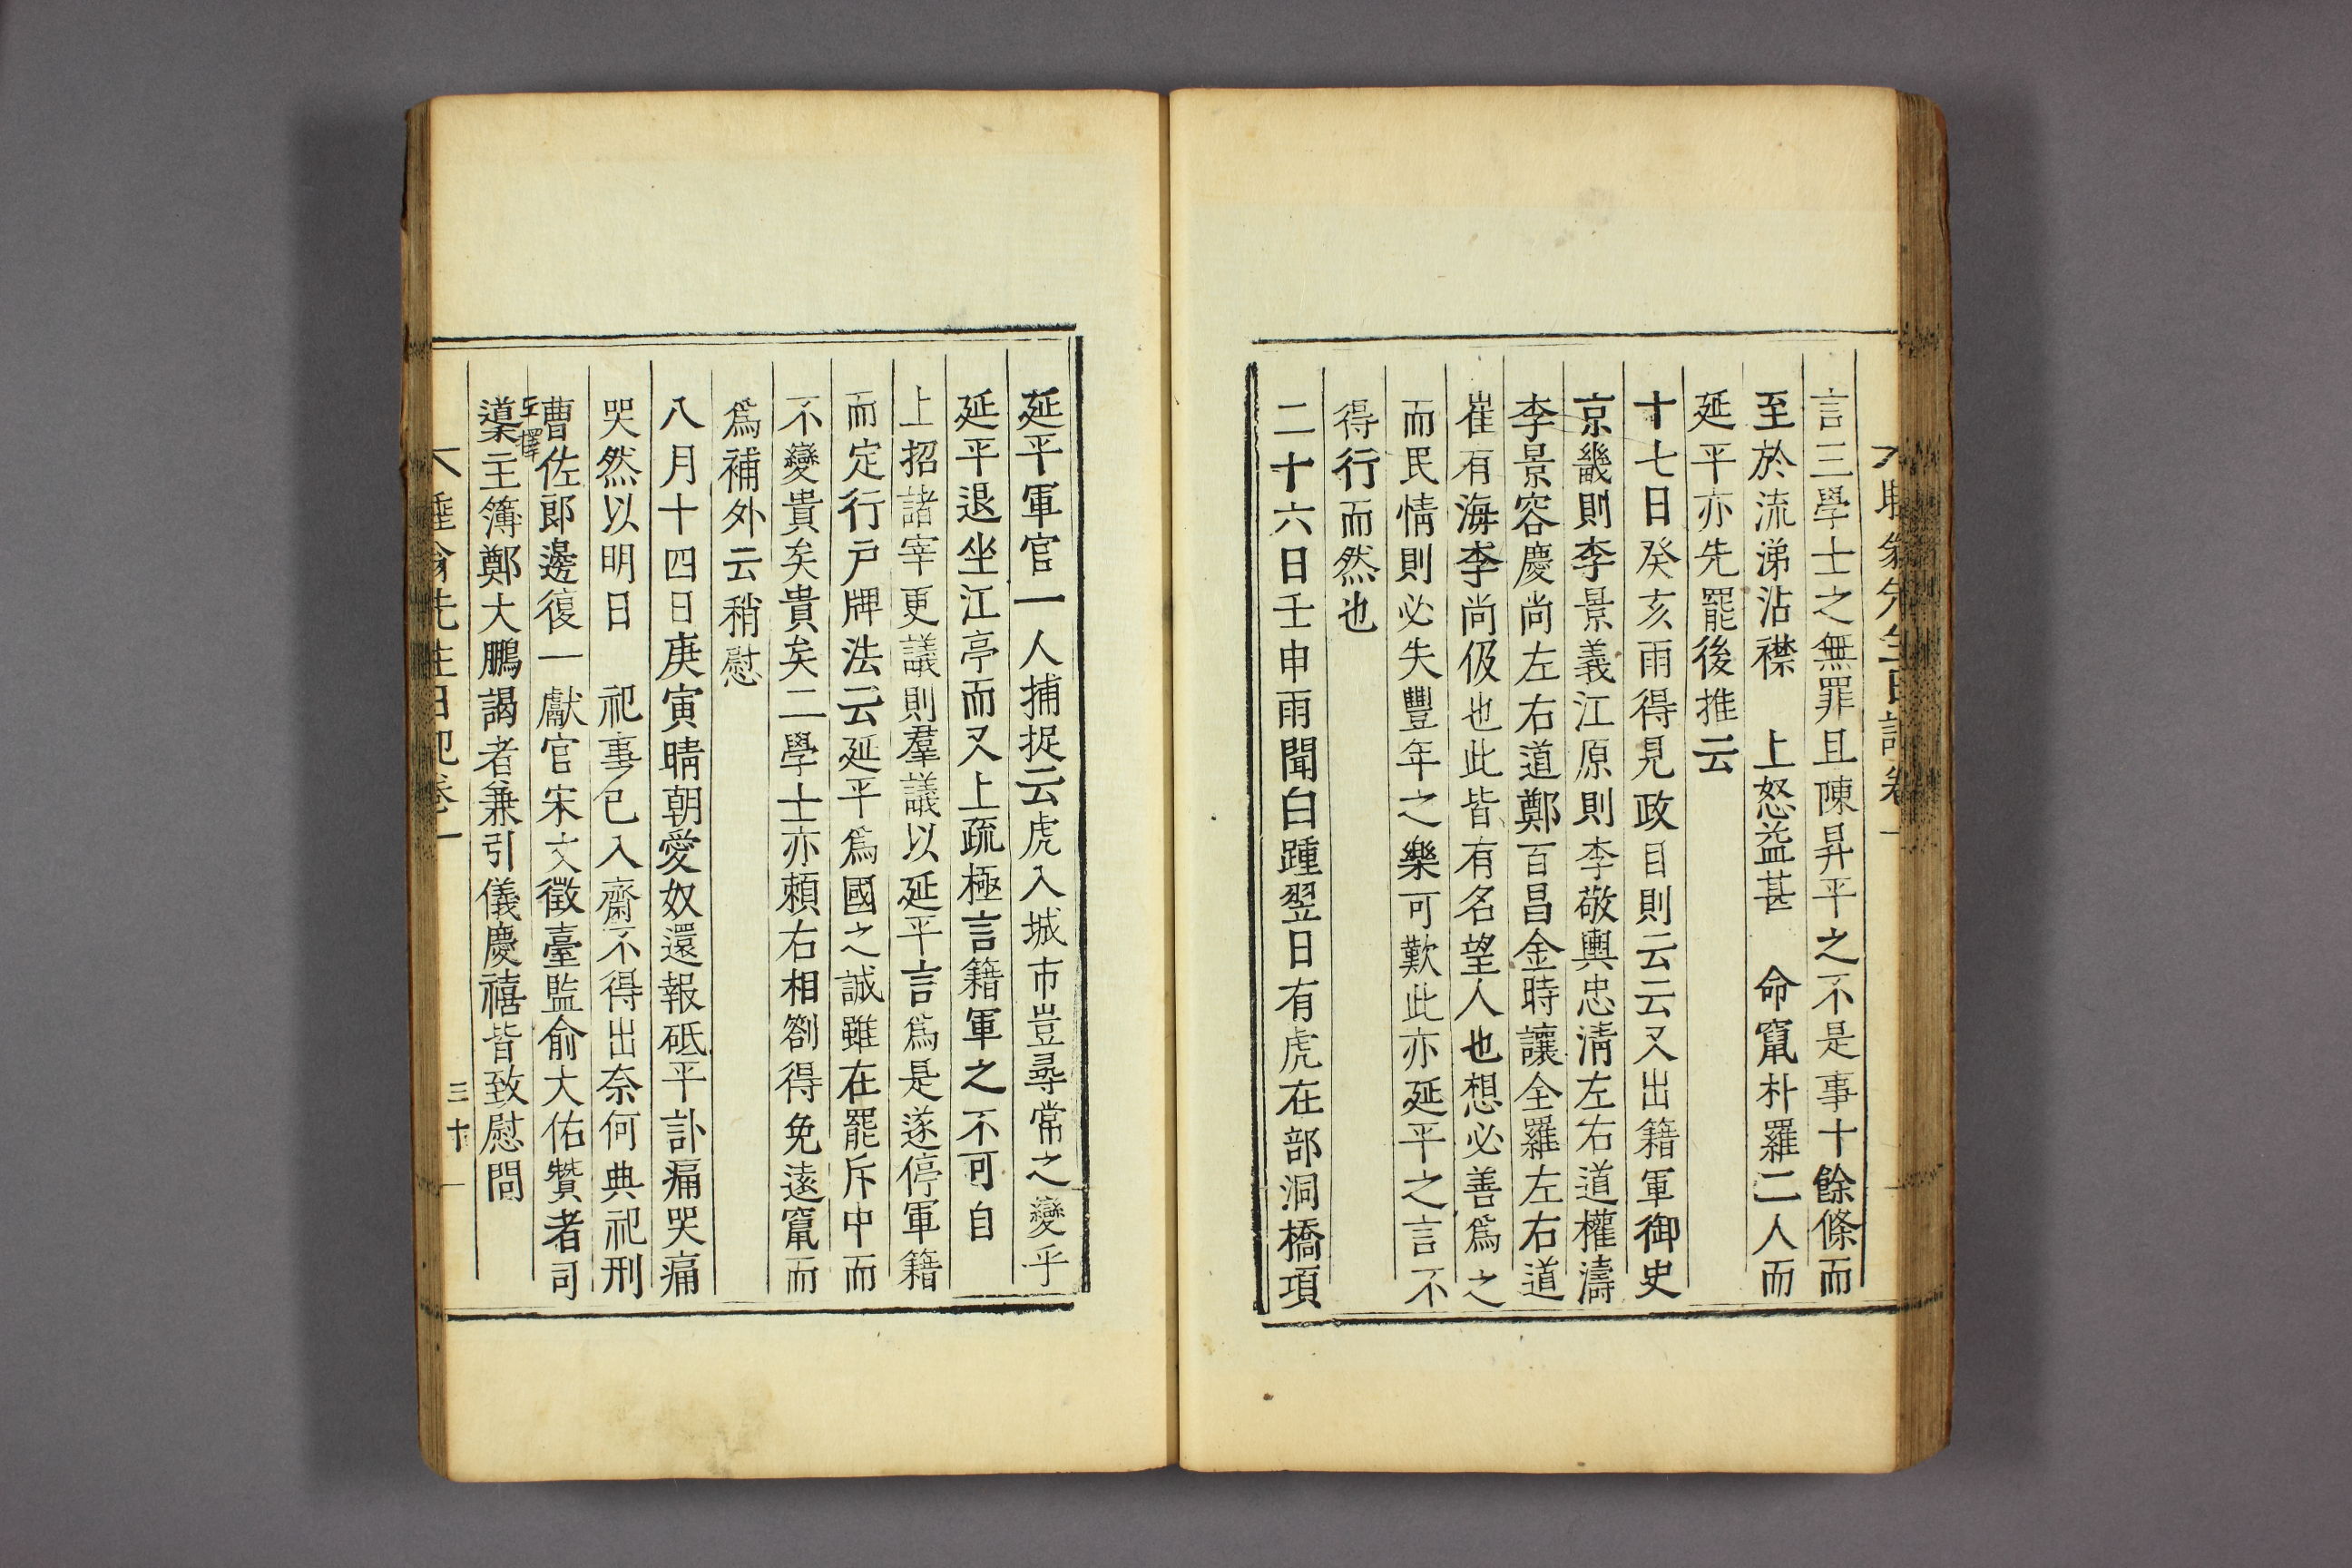 言三學士之無罪且陳昇平之不是事十餘條而
至於流涕沾襟　上怒益甚　命竄朴羅二人而
延平亦先罷後推云
十七日癸亥雨得見政目則云云又出籍軍御史
京畿則李景義江原則李敬輿忠淸左右道權濤
李景容慶尙左右道鄭百昌金時讓全羅左右道
崔有海李尙伋也此皆有名望人也想必善爲之
而民情則必失豐年之樂可歎此亦延平之言不
得行而然也
二十六日壬申雨聞白踵翌日有虎在部洞橋項
延平軍官一人捕捉云虎入城市豈尋常之變乎
延平退坐江亭而又上疏極言籍軍之不可自
上招諸宰更議則羣議以延平言爲是遂停軍籍
而定行戶牌法云延平爲國之誠雖在罷斥中而
不變貴矣貴矣二學士亦賴右相劄得免遠竄而
爲補外云稍慰
八月十四日庚寅晴朝愛奴還報砥平訃痛哭痛
哭然以明日　祀事已入齋不得出奈何典祀刑
曹佐郞邊復一獻官宋文徵臺監俞大佑贊者司
䆃主簿鄭大鵬謁者兼引儀慶禧皆致慰問
睡翁先生日記卷一
三十